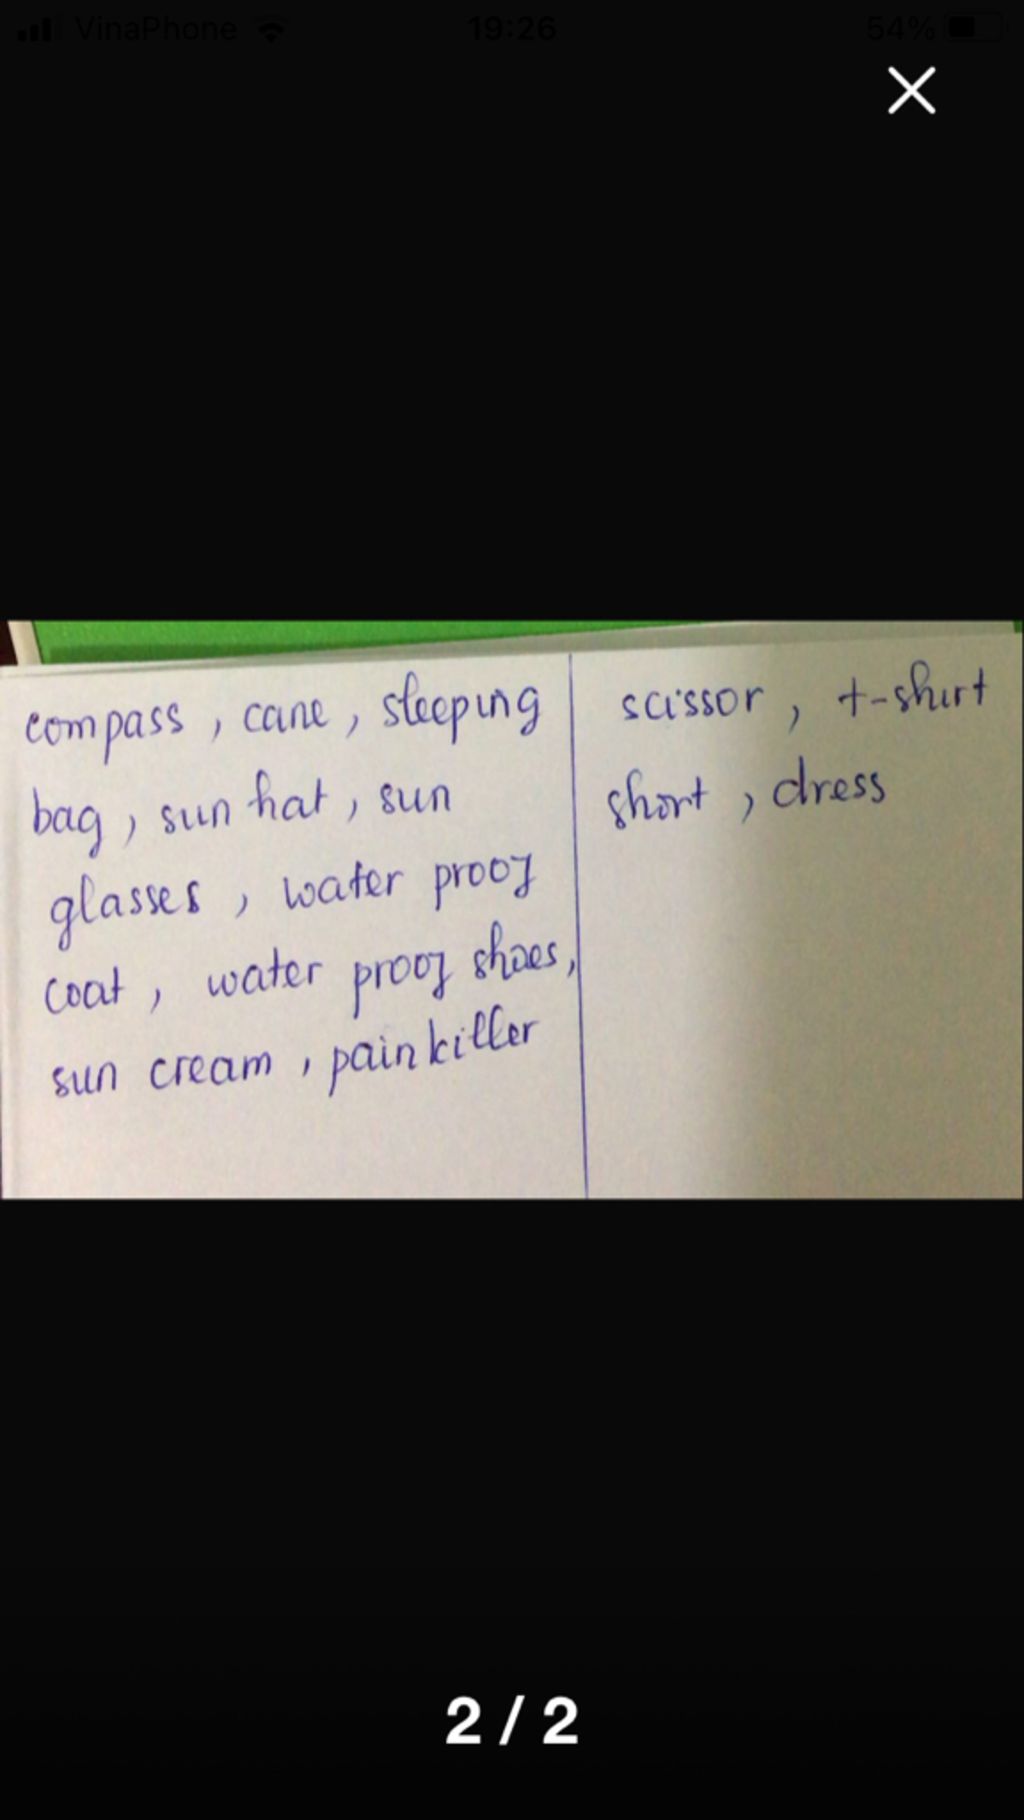 VinaPhone 19:26 54%
compass, cane, sleeping
bag, sun hat, sun
glasses, water proof
coat, water proof shoes,
sun cream, painkiller
scissor, t-shirt
short, dress
2/2